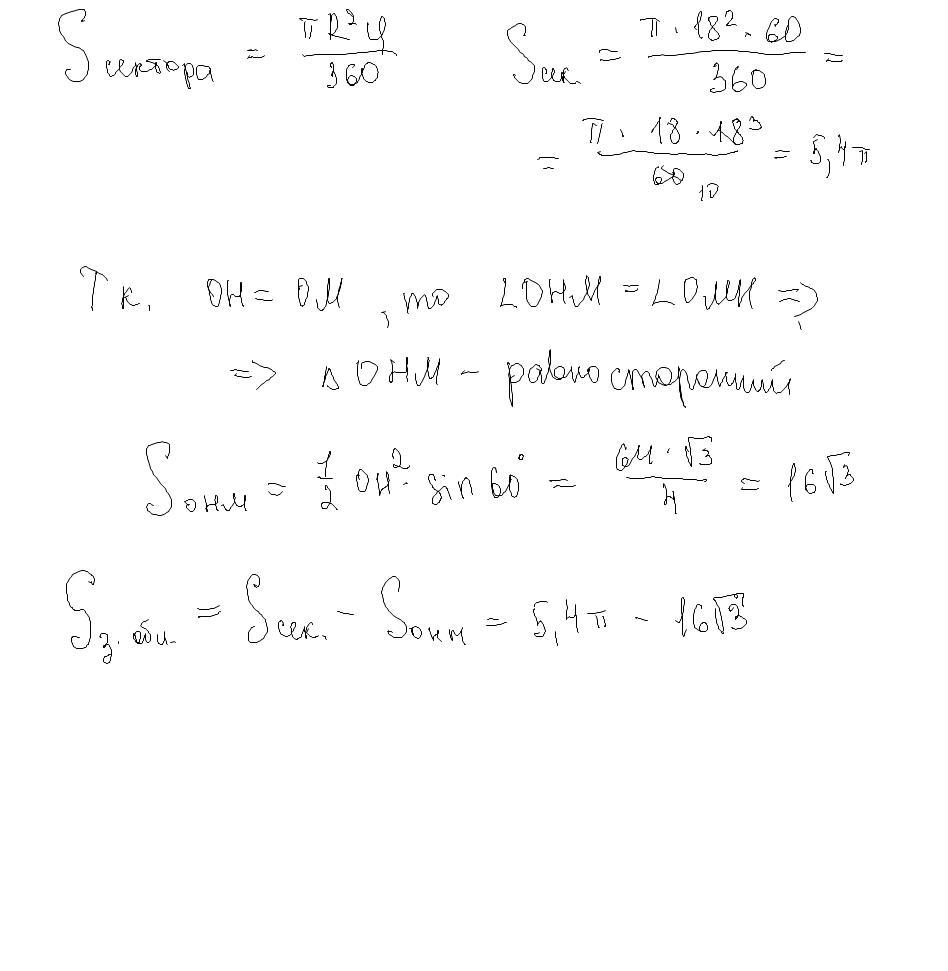 S сектора = πR²φ / 360    S сек. = π · 18² · 60 / 360 =
= π · 18 · 18³ / 60 10 = 5,4π
Т к. OH = OM , то ∠OHM = ∠OMH =>
=> Δ OHM – равносторонний
S OHM = 1/2 OH² · sin 60° = 64 · √3 / 4 = 16√3
S з. обл. = S сек. – S онм = 5,4π – 16√3